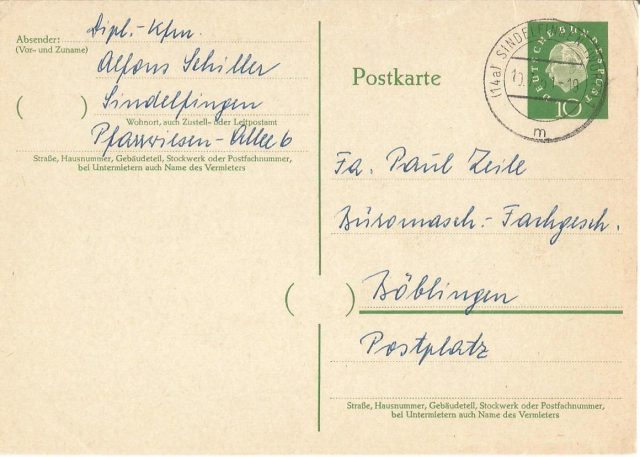 Absender:
(Vor- und Zuname)
Dipl.-Kfm.
Alfons Schiller
Sindelfingen
Wohnort, auch Zustell- oder Leitpostamt
Pfarrwiesen-Allee 6
Straße, Hausnummer, Gebäudeteil, Stockwerk oder Postfachnummer,
bei Untermietern auch Name des Vermieters
Postkarte
(14a) SINDELFINGEN
m
DEUTSCHE BUNDESPOST
10
Fa. Paul Zeile
Büromasch.-Fachgesch.
Böblingen
Postplatz
Straße, Hausnummer, Gebäudeteil, Stockwerk oder Postfachnummer,
bei Untermietern auch Name des Vermieters